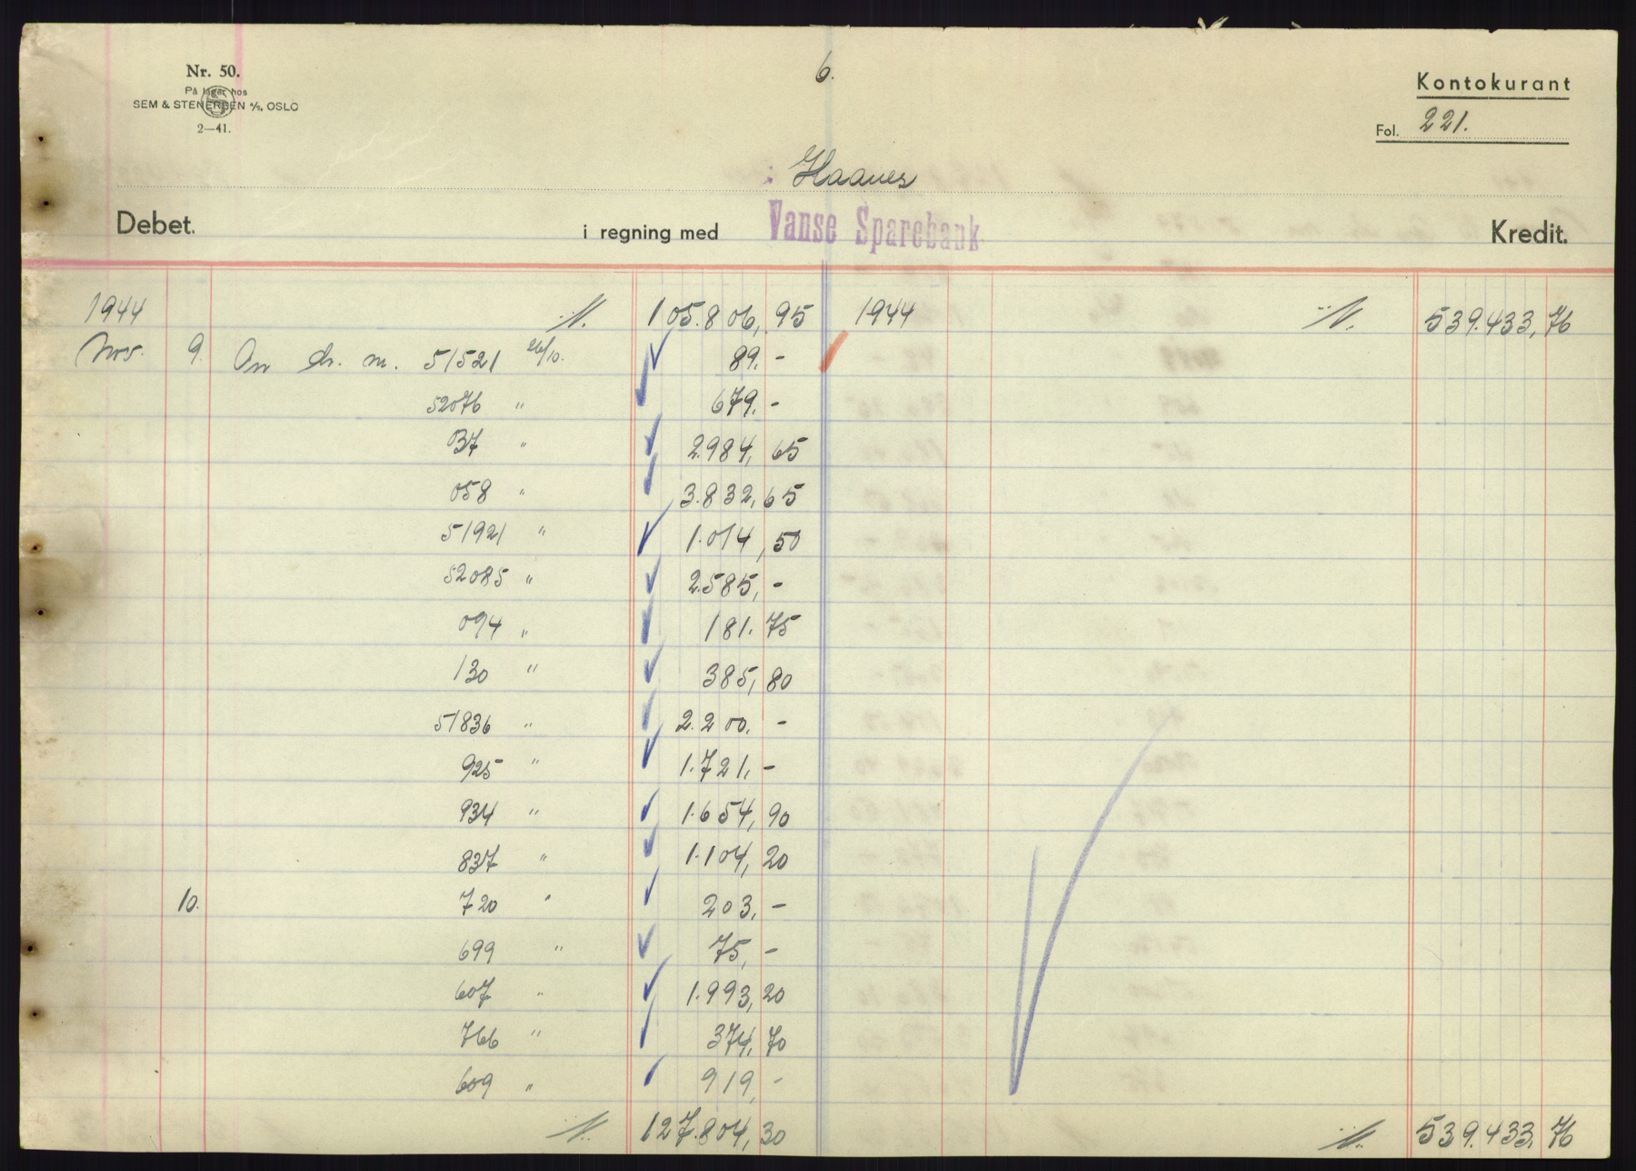 Nr. 50.
På lager hos
SEM & STENERSEN A/S, OSLO
2—41.
6.
Kontokurant
Fol. 221.
Haanes
Debet. i regning med Vanse Sparebank Kredit.
1944 105.806,95 1944 539.433,76
Nov. 9. An dr. m. 51521 26/10. 89.-
52076 " 679.-
037 " 2984,65
058 " 3.832,65
51921 " 1.014,50
52085 " 2585,-
094 " 181.75
130 " 385,80
51836 " 2.200.-
925 " 1.721.-
934 " 1.654,90
837 " 1.104,20
10. 720 " 203,-
699 " 75,-
607 " 1.993,20
766 " 374,70
609 " 919,-
127.804,30 539.433,76